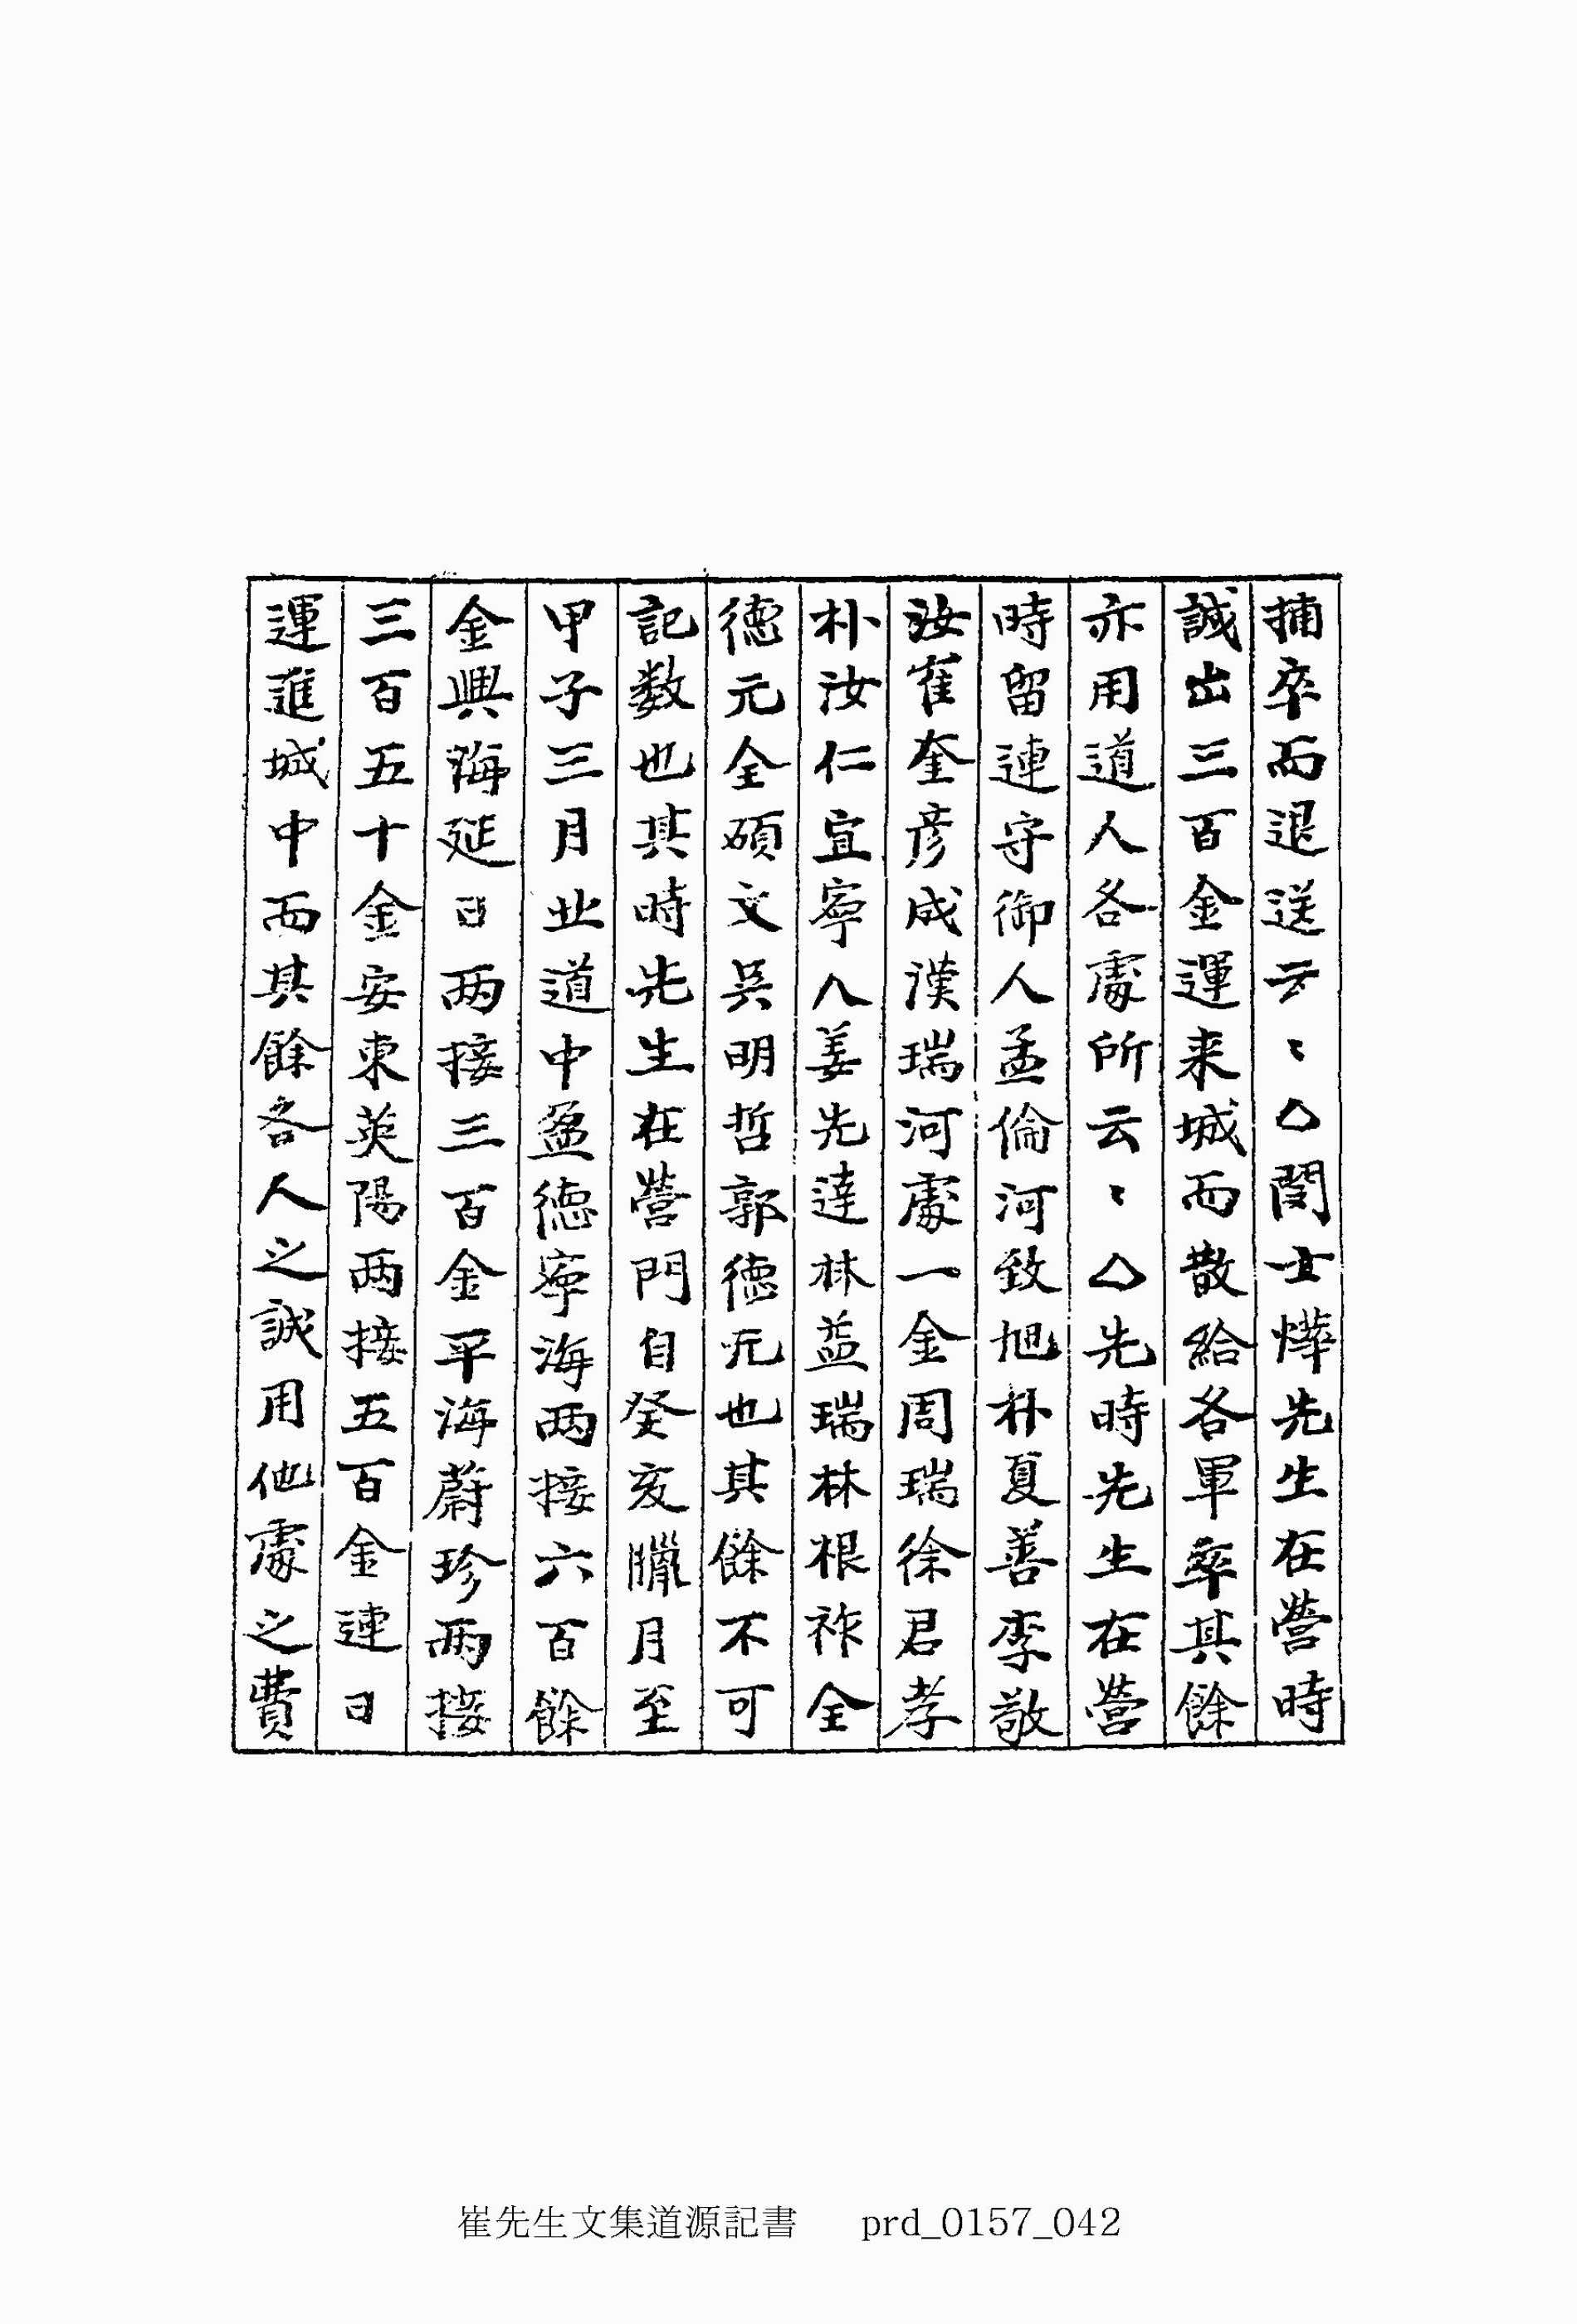 捕卒而退送云〻△閔士燁先生在營時
誠出三百金運来城而散給各軍率其餘
亦用道人各處所云〻△先時先生在營
時留連守御人孟倫河致旭朴夏善李敬
汝崔奎彦成漢瑞河處一金周瑞徐君孝
朴汝仁宜寧人姜先達林益瑞林根祚全
德元全碩文吳明哲郭德元也其餘不可
記数也其時先生在營門自癸亥臘月至
甲子三月北道中盈德寧海两接六百餘
金興海延日两接三百金平海蔚珍两接
三百五十金安東英陽两接五百金連日
運進城中而其餘各人之誠用他處之費
崔先生文集道源記書 prd_0157_042